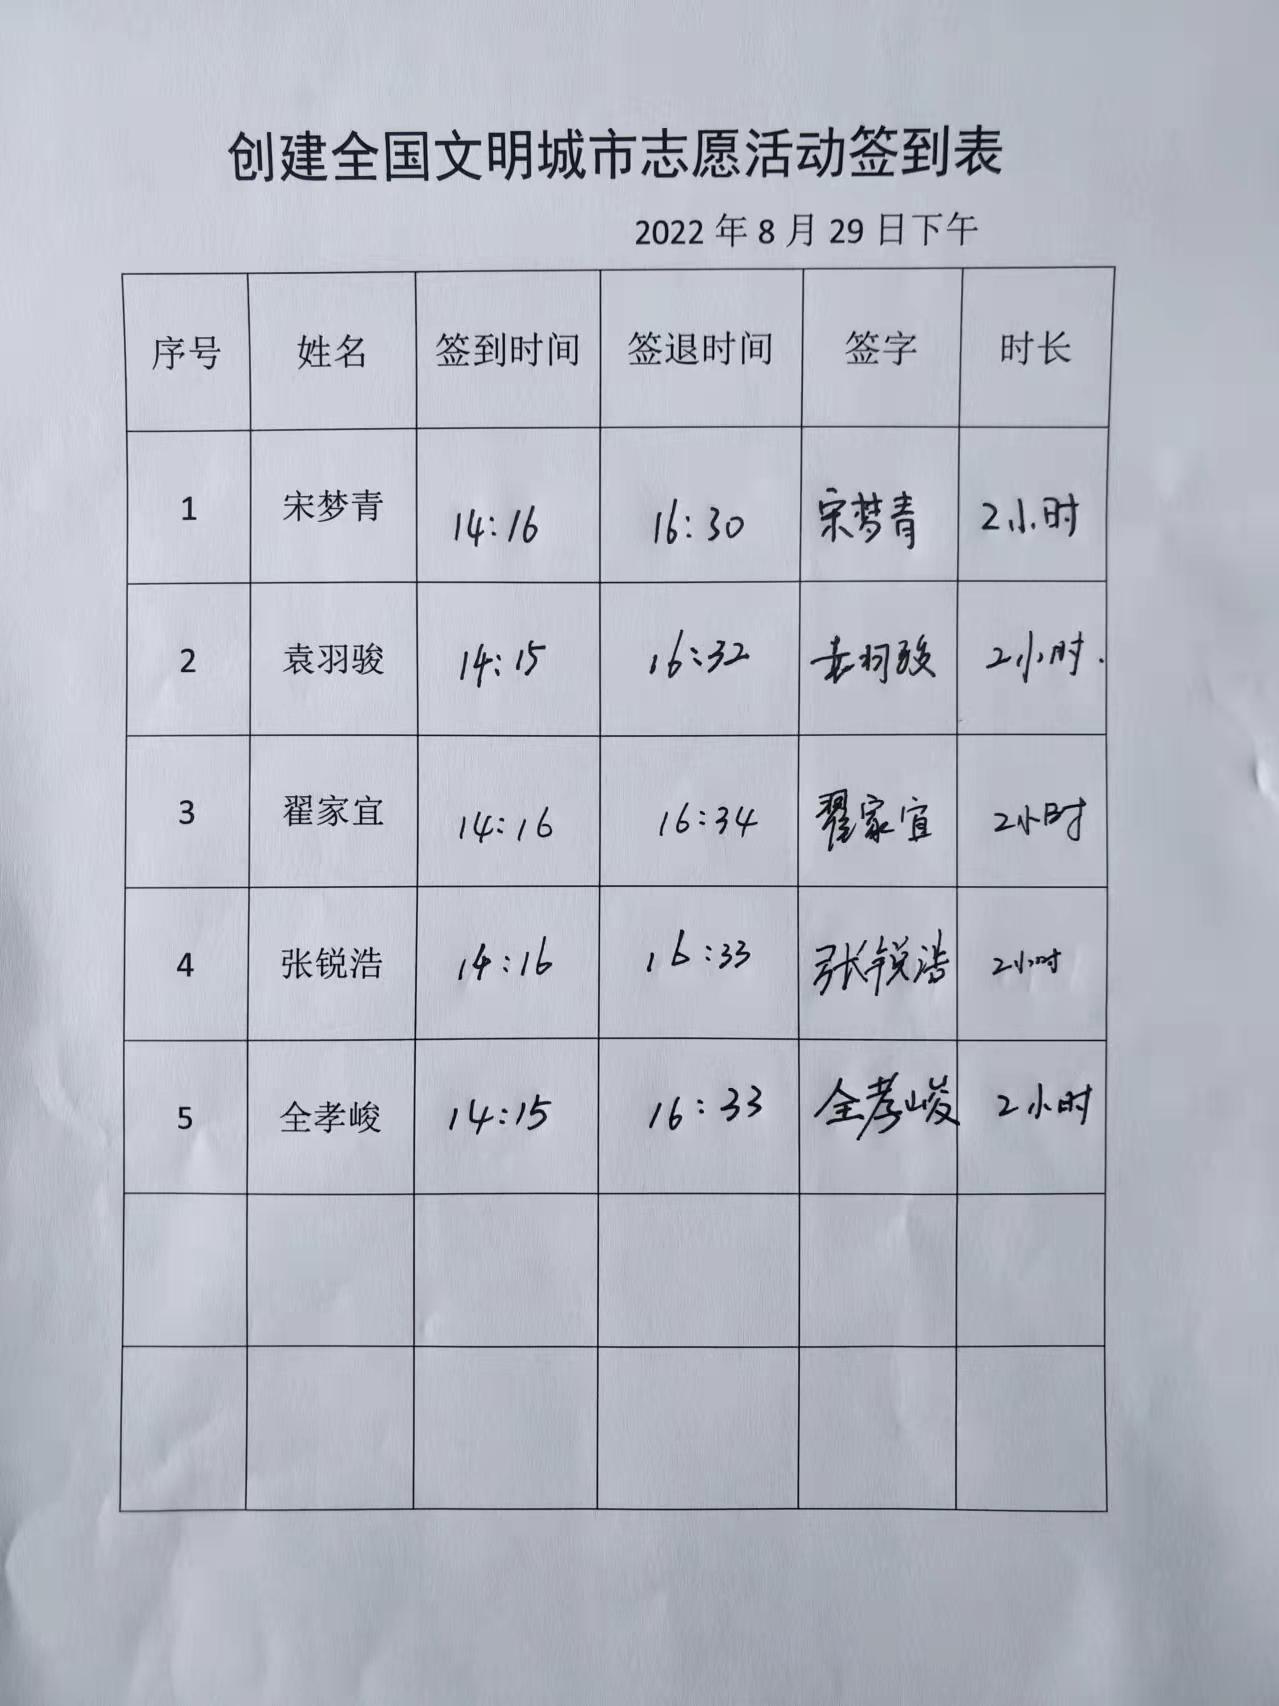 创建全国文明城市志愿活动签到表
2022 年 8 月 29 日下午
序号 姓名 签到时间 签退时间 签字 时长
1 宋梦青 14:16 16:30 宋梦青 2小时
2 袁羽骏 14:15 16:32 袁羽骏 2小时.
3 翟家宜 14:16 16:34 翟家宜 2小时
4 张锐浩 14:16 16:33 张锐浩 2小时
5 全孝峻 14:15 16:33 全孝峻 2小时